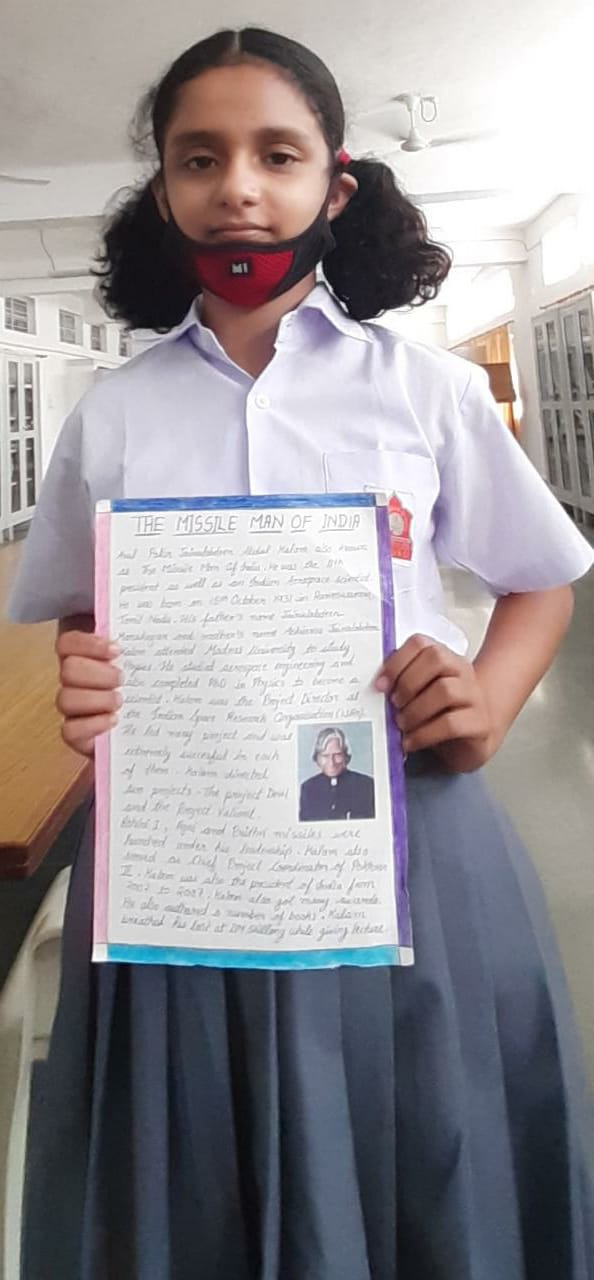 MI
THE MISSILE MAN OF INDIA
Avul Pakir Jainulabdeen Abdul Kalam also known
as The Missile Man Of India. He was the 11th
president as well as an Indian Aerospace scientist.
He was born on 15th October 1931 in Rameswaram,
Tamil Nadu. His father's name Jainulabdeen
Marakayar and mother's name Ashiamma Jainulabdeen
Kalam attended Madras University to study
Physics. He studied aerospace engineering and
also completed PhD in Physics to become a
scientist. Kalam was the Project Director at
the Indian Space Research Organisation (ISRO).
He led many project and was
extremely succesful in each
of them. Kalam directed
two projects. The project Devil
and the Project Valiant.
Rohini I, Agni and Prithvi missiles were
launched under his leadership. Kalam also
served as Chief Project Coordinator of Pokhran
II. Kalam was also the president of India from
2002 to 2007. Kalam also got many awards.
He also authored a number of books. Kalam
breathed his last at IIM Shillong while giving lecture.